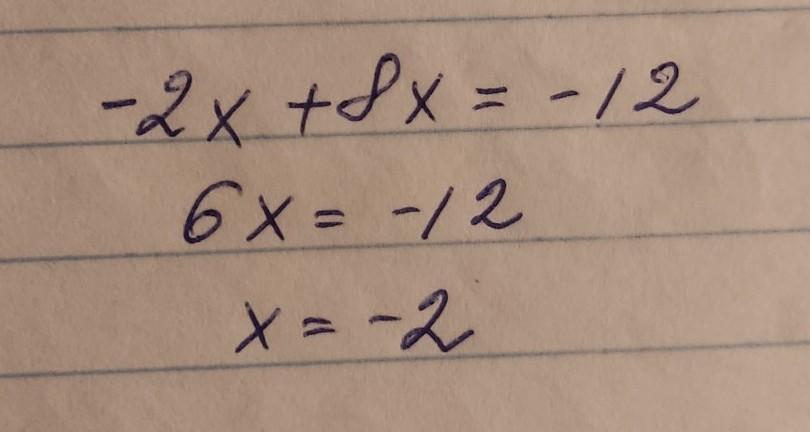 -2x +8x = -12
6x = -12
x = -2